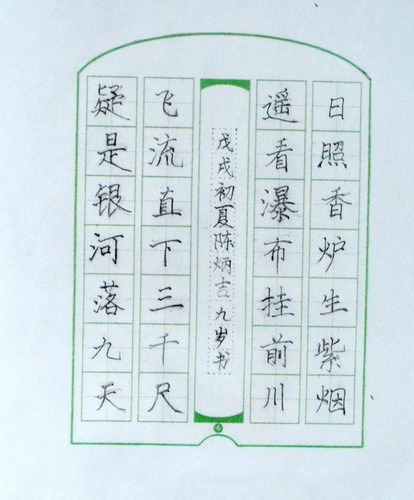 日照香炉生紫烟
遥看瀑布挂前川
戊戌初夏陈炳吉九岁书
飞流直下三千尺
疑是银河落九天